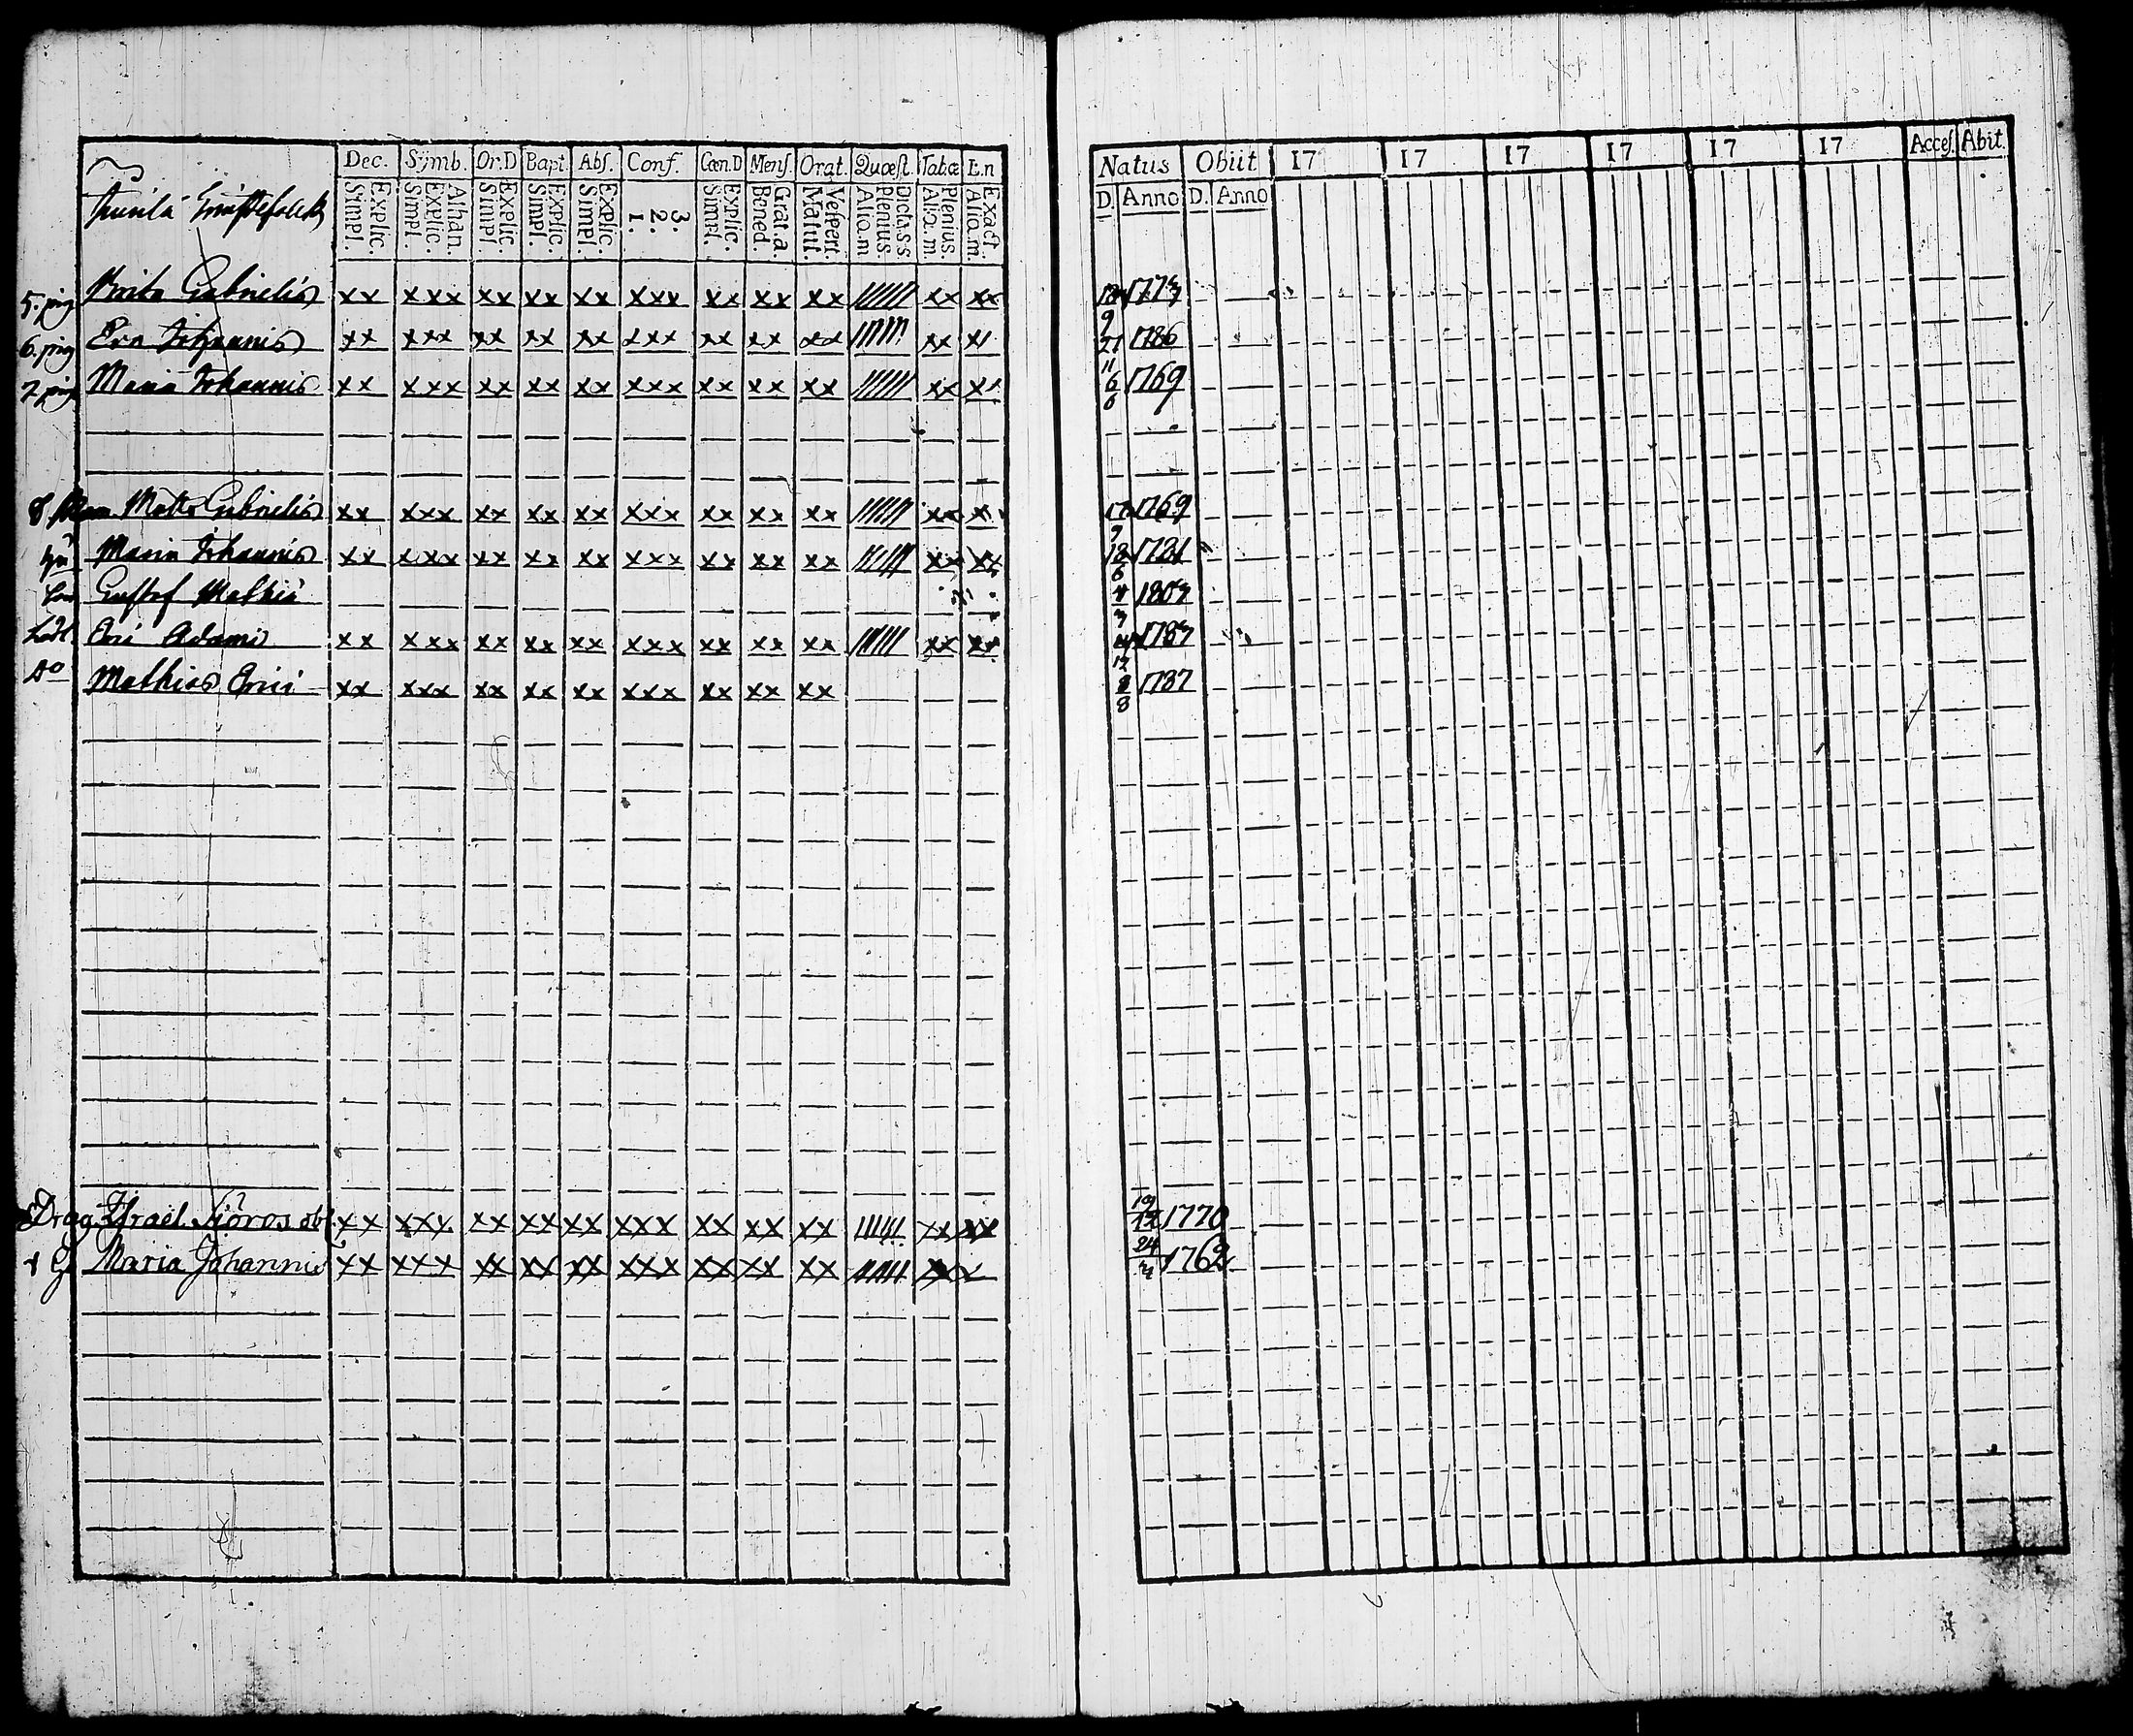 Dec. Symb. Or.D Bapt. Abs. Conf. Cœn.D Mens. Orat. Quæst. Tab.œ En
Explic. Simpl. Athan. Explic. Simpl. Explic. Simpl. Explic. Simpl. Explic. Simpl. 3. 2. 1. Explic. Simpl. Grat.a. Bened. Vespert. Matut. Dicta.S.S Plenius. Aliq.m Plenius. Aliq.m. Exact. Aliq.m.
Natus Obiit 17 17 17 17 17 17 Acces. Abit.
D. Anno D. Anno
5. pig Brita Gabrielis xx xxx xx xx xx xxx xx xx xx ////// xx xx 9 1773
6. pig Eva Johannis xx xxx xx xx xx xxx xx xx xx ////// xx x 21 11 1786
7. pig Maria Johannis xx xxx xx xx xx xxx xx xx xx ////// xx x 6 6 1769
8 Matts Gabrielis xx xxx xx xx xx xxx xx xx xx ////// xx x 9 1769
Maria Johannis xx xxx xx xx xx xxx xx xx xx ////// xx xx 18 6 1781
Gustaf Mathiæ 4 3 1803
Eric Adami xx xxx xx xx xx xxx xx xx xx ////// xx xx 12 1737
Do Mathias Erici xx xxx xx xx xx xxx xx xx xx 8 8 1787
Drag Israel xx xxx xx xx xx xxx xx xx xx ////// xx xx 19/12 1770
Maria Johannis xx xxx xx xx xx xxx xx xx xx ////// xxx 24 1762